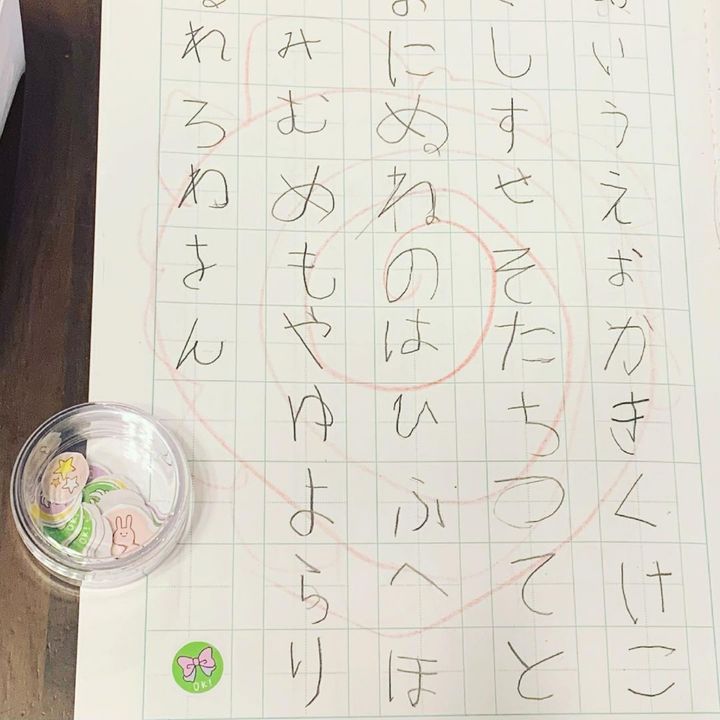 いうえおかきくけこ
しすせそたちつてと
なにぬねのはひふへほ
みむめもやゆよらり
るれろわをん
OK!
OK!